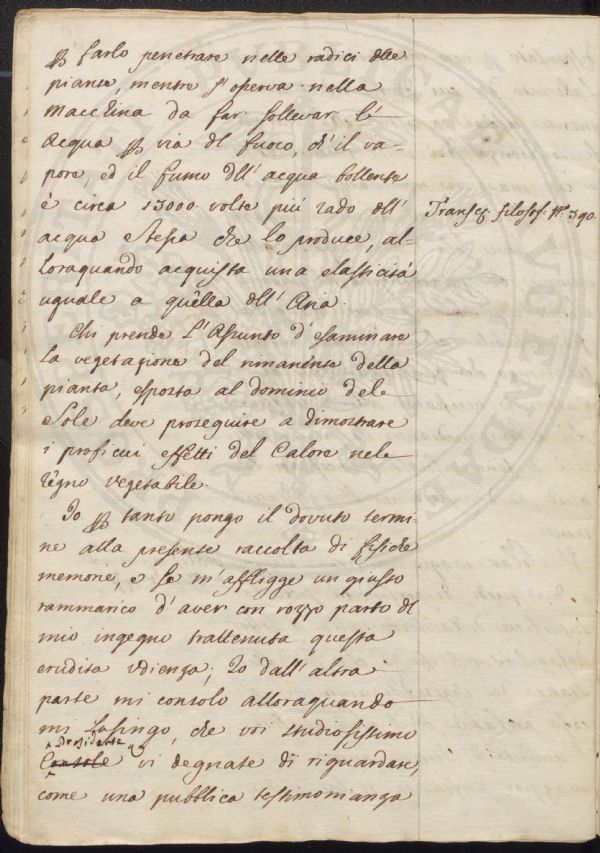 ꝑ farlo penetrare nelle radici delle
piante, mentre s'osserva nella
Macchina da far sollevar l'
Acqua ꝑ via dl fuoco, ch'il va-
pore, ed il fumo dll'acqua bollente
è circa 13000 volte piú rado dll'
acqua stessa che lo produce, al-
loraquando acquista una elasticità
uguale a quella dll'Aria.
Transaz. filosof. N.º 390.
Chi prende l'Assunto d'esaminare
la vegetazione del rimanente della
pianta, esposta al dominio del
Sole deve proseguire a dimostrare
i proficui effetti del Calore nel
regno vegetabile.
Io ꝑ tanto pongo il dovuto termi-
ne alla presente raccolta di fisiche
memorie, e se m'affligge un giusto
rammarico d'aver con rozzo parto di
mio ingegno trattenuta questa
erudita Udienza; Io dall'altra
parte mi consolo alloraquando
mi lusingo, che voi studiosissimo
Presidente
Console vi degnate di riguardare,
come una pubblica testimonianza